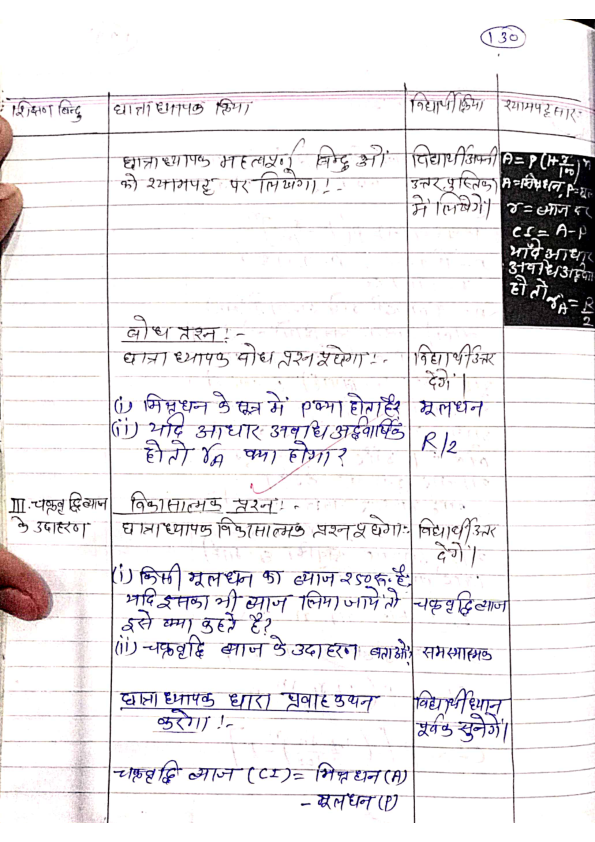 130
शिक्षण बिन्दु
छात्राध्यापक क्रिया
विद्यार्थी क्रिया
श्यामपट्ट सार:
छात्राध्यापक महत्वपूर्ण बिन्दुओं
को श्यामपट्ट पर लिखेगा!-
विद्यार्थी अपनी
उत्तर पुस्तिका
में लिखेगें।
A = P(1+r/100)n
A=मिश्रधन, P=मूल
r = ब्याज दर
CI = A-P
यदि आधार
अवधि अर्द्धवा
हो तो rA = R/2
बोध प्रश्न!-
छात्राध्यापक बोध प्रश्न पूछेगा!-
विद्यार्थी उत्तर
देगें।
(i) मिश्रधन के सूत्र में P क्या होता है?
मूलधन
(ii) यदि आधार अवधि अर्द्धवार्षिक
हो तो rA क्या होगा?
R/2
III. चक्रवृद्धि ब्याज
के उदाहरण
विकासात्मक प्रश्न!-
छात्राध्यापक विकासात्मक प्रश्न पूछेगा:-
विद्यार्थी उत्तर
देगें।
(i) किसी मूलधन का ब्याज 250रू. है
यदि इसका भी ब्याज लिया जाये तो
इसे क्या कहते है?
चक्रवृद्धि ब्याज
(ii) चक्रवृद्धि ब्याज के उदाहरण बताओ?
समस्यात्मक
छात्राध्यापक धारा प्रवाह कथन
करेगा!-
विद्यार्थी ध्यान
पूर्वक सुनेगें।
चक्रवृद्धि ब्याज (CI) = मिश्रधन (A)
- मूलधन (P)